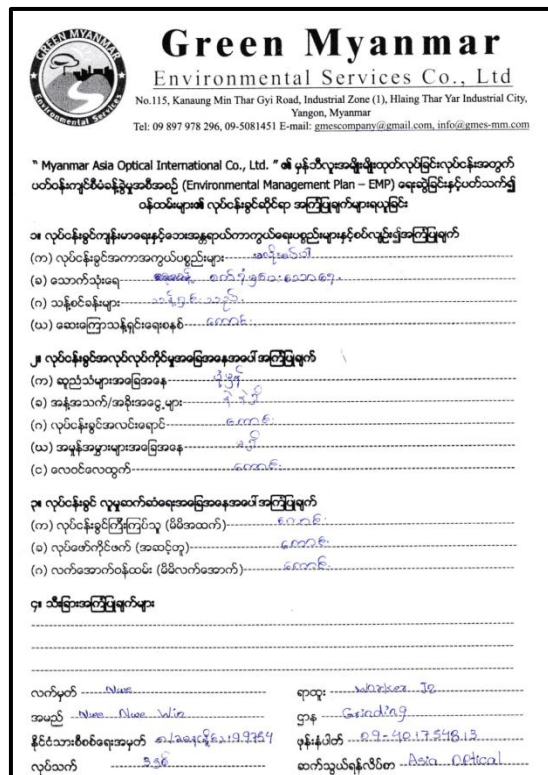 GREEN MYANMAR
Environmental Services
Green Myanmar
Environmental Services Co., Ltd
No.115, Kanaung Min Thar Gyi Road, Industrial Zone (1), Hlaing Thar Yar Industrial City,
Yangon, Myanmar
Tel: 09 897 978 296, 09-5081451 E-mail: gmescompany@gmail.com, info@gmes-mm.com
" Myanmar Asia Optical International Co., Ltd. " ၏ မှန်ဘီလူးအမျိုးမျိုးထုတ်လုပ်ခြင်းလုပ်ငန်းအတွက်
ပတ်ဝန်းကျင်စီမံခန့်ခွဲမှုအစီအစဉ် (Environmental Management Plan – EMP) ရေးဆွဲခြင်းနှင့်ပတ်သက်၍
ဝန်ထမ်းများ၏ လုပ်ငန်းခွင်ဆိုင်ရာ အကြံပြုချက်များရယူခြင်း
၁။ လုပ်ငန်းခွင်ကျန်းမာရေးနှင့်ဘေးအန္တရာယ်ကာကွယ်ရေးပစ္စည်းများနှင့်စပ်လျဉ်း၍အကြံပြုချက်
(က) လုပ်ငန်းခွင်အကာအကွယ်ပစ္စည်းများ
(ခ) သောက်သုံးရေ
(ဂ) သန့်စင်ခန်းများ
(ဃ) ဆေးကြောသန့်ရှင်းရေးစနစ် ကောင်း
၂။ လုပ်ငန်းခွင်အလုပ်လုပ်ကိုင်မှုအခြေအနေအပေါ် အကြံပြုချက်
(က) ဆူညံသံများအခြေအနေ ပုံမှန်
(ခ) အနံ့အသက်/အခိုးအငွေ့များ နဲနဲရှိ
(ဂ) လုပ်ငန်းခွင်အလင်းရောင် ကောင်း
(ဃ) အမှုန်အမွှားများအခြေအနေ မရှိ
(င) လေဝင်လေထွက် ကောင်း
၃။ လုပ်ငန်းခွင် လူမှုဆက်ဆံရေးအခြေအနေအပေါ် အကြံပြုချက်
(က) လုပ်ငန်းခွင်ကြီးကြပ်သူ (မိမိအထက်) ကောင်း
(ခ) လုပ်ဖော်ကိုင်ဖက် (အဆင့်တူ) ကောင်း
(ဂ) လက်အောက်ဝန်ထမ်း (မိမိလက်အောက်) ကောင်း
၄။ သီးခြားအကြံပြုချက်များ
လက်မှတ် Nwe
ရာထူး Worker
အမည် Nwe Nwe Win
ဌာန Grinding
နိုင်ငံသားစိစစ်ရေးအမှတ်
ဖုန်းနံပါတ် 09-401754813
လုပ်သက်
ဆက်သွယ်ရန်လိပ်စာ Asia Optical